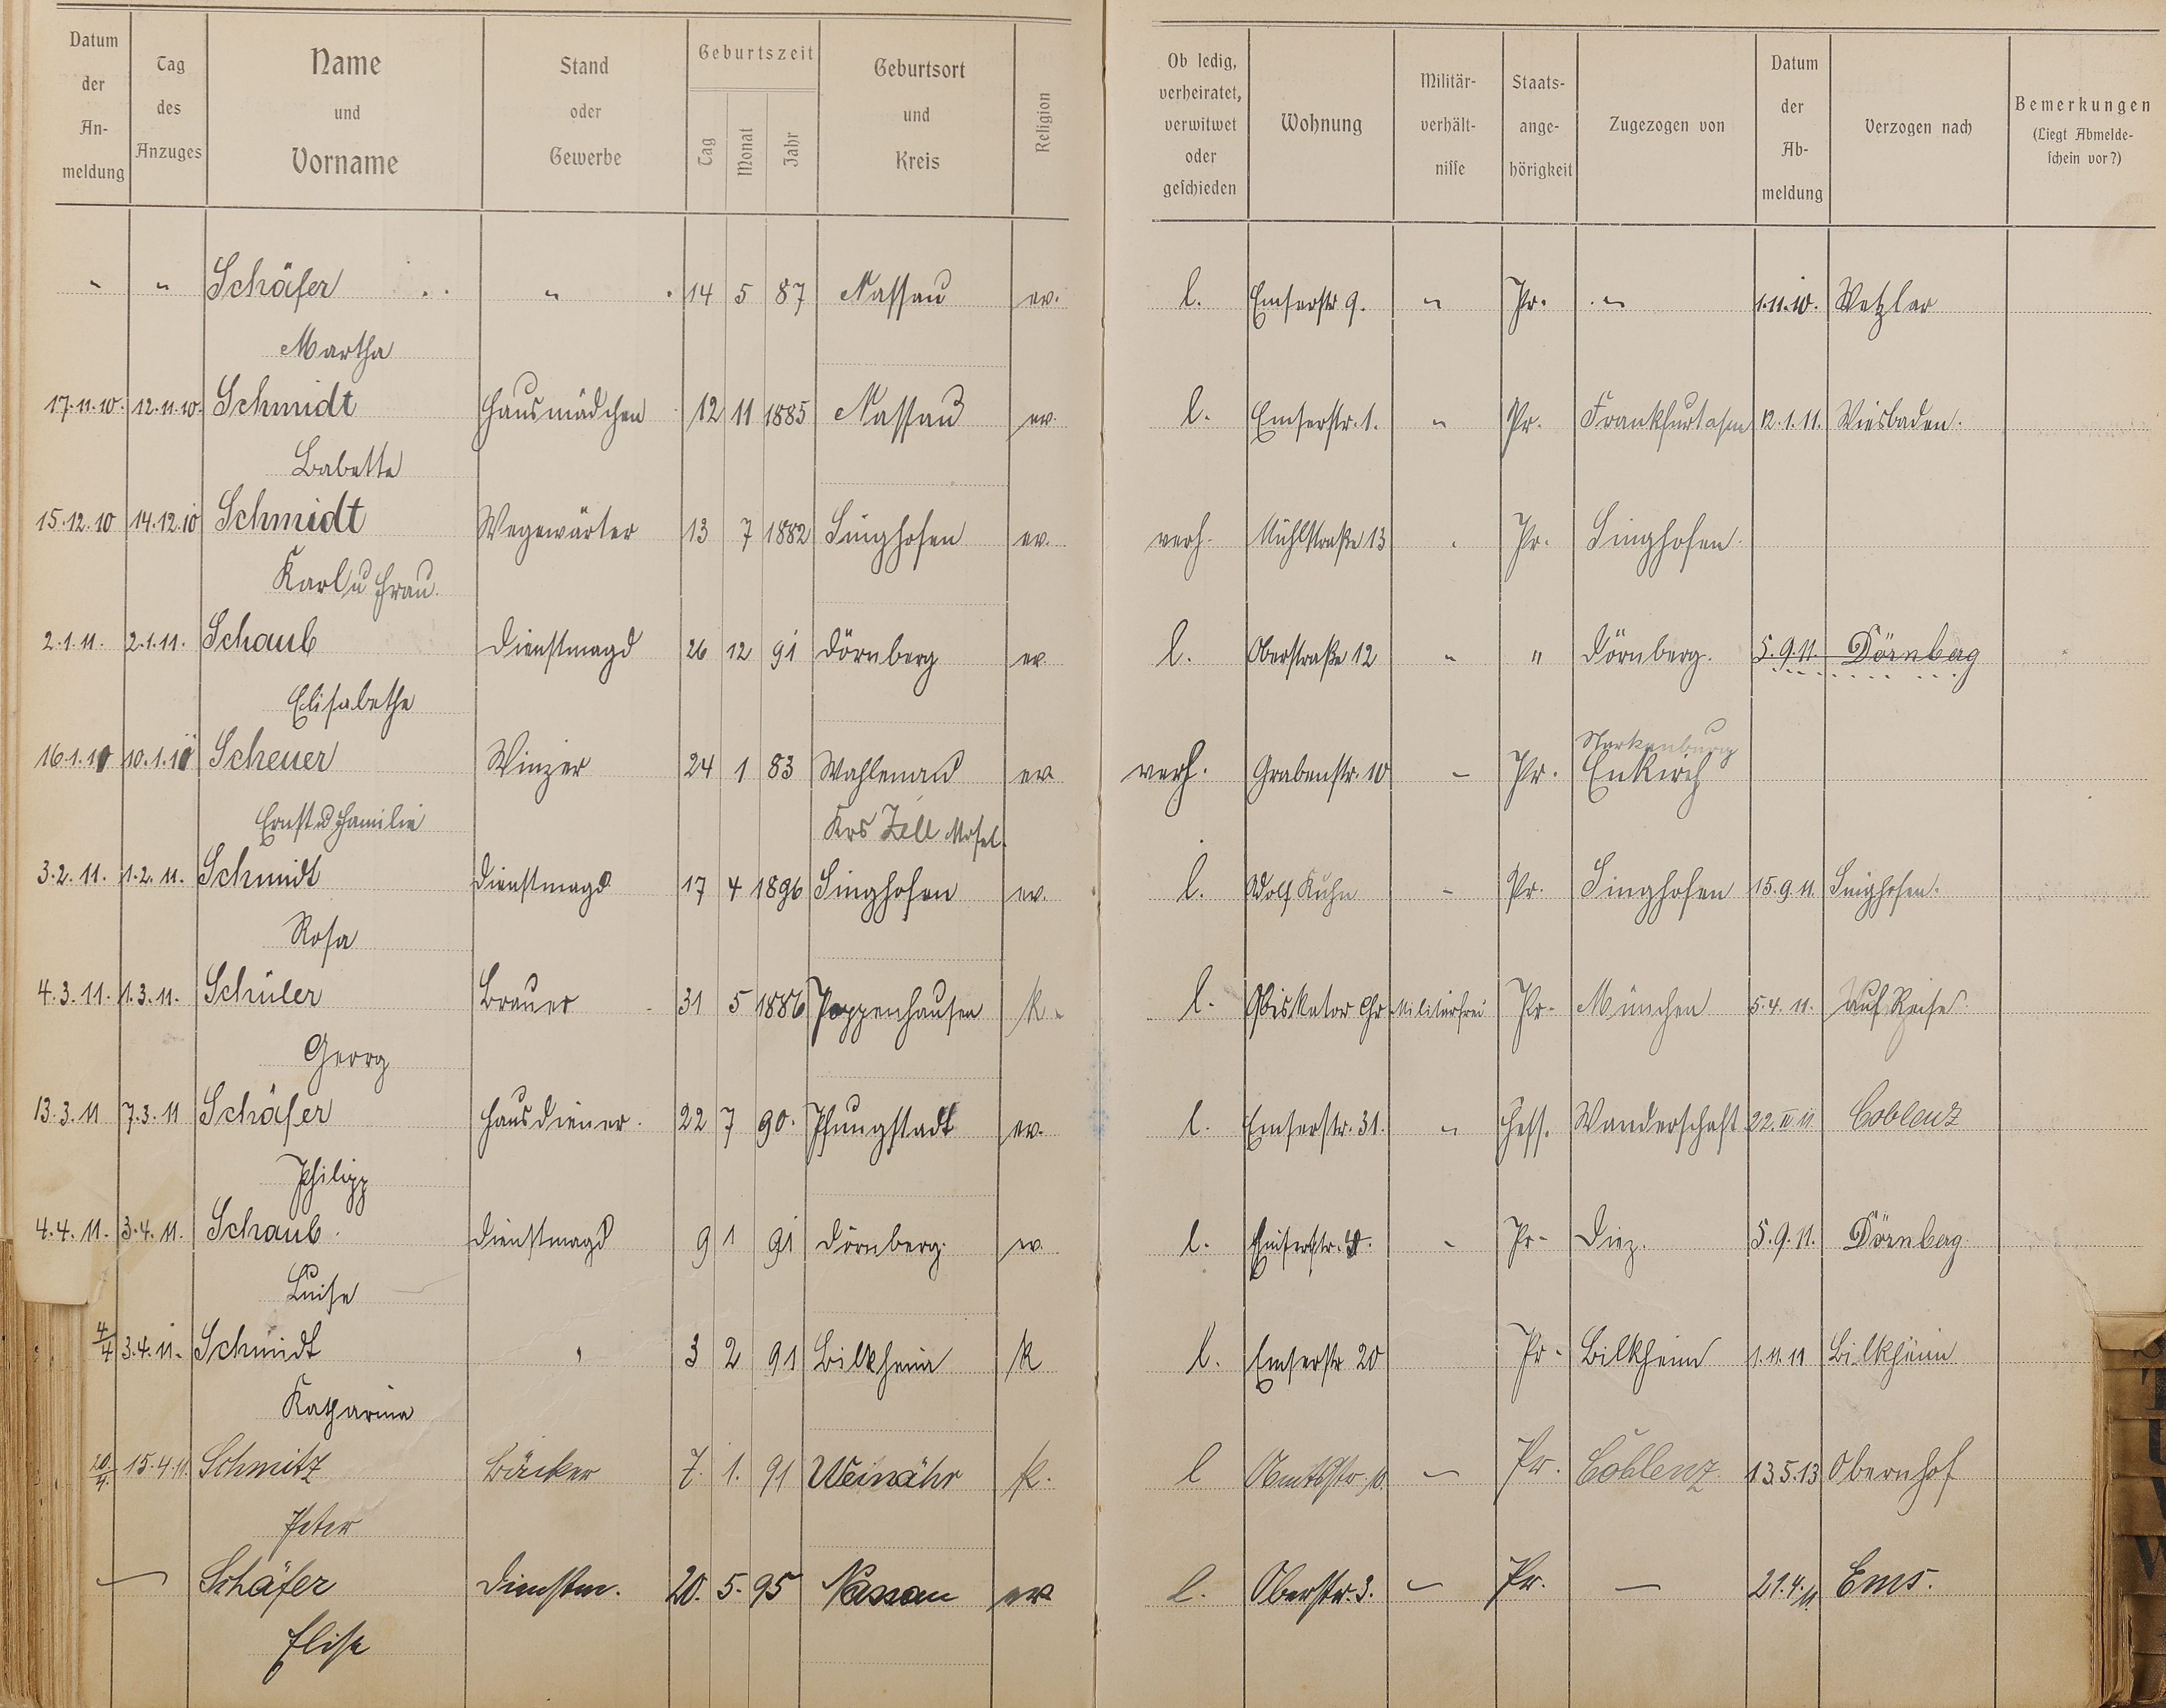 Datum der Anmeldung | Tag des Anzuges | Name und Vorname | Stand oder Gewerbe | Geburtszeit Tag Monat Jahr | Geburtsort und Kreis | Religion | Ob ledig, verheiratet, verwitwet oder geschieden | Wohnung | Militärverhältnisse | Staatsangehörigkeit | Zugezogen von | Datum der Abmeldung | Verzogen nach | Bemerkungen (Liegt Abmeldeschein vor?)
" " Schäfer " 14 5 87 Nassau ev. l. Emserstr 9. " Pr. " 1.11.10. Wetzlar
Martha
17.11.10. 12.11.10. Schmidt Hausmädchen 12 11 1885 Nassau ev. l. Emserstr. 1. " Pr. Frankfurt a/m 12.1.11. Wiesbaden.
Babette
15.12.10 14.12.10 Schmidt Wegewärter 13 7 1882 Singhofen ev. verh. Mühlstraße 13 Pr. Singhofen.
Karl u Frau.
2.1.11. 2.1.11. Schaub Dienstmagd 26 12 91 Dörnberg ev. l. Oberstraße 12 " " Dörnberg. 5.9.11. Dörnberg
Elisabethe
Starkenburg
16.1.11 10.1.11 Scheuer Winzer 24 1 83 Wahlenau ev verh. Grabenstr. 10 - Pr. Enkirch
Ernst u Familie Krs Zell Mosel.
3.2.11. 1.2.11. Schmidt Dienstmagd 17 4 1896 Singhofen ev. l. Adolf Kuhn - Pr. Singhofen 15.9.11. Singhofen.
Rosa
4.3.11. 1.3.11. Schüler Brauer 31 5 1886 Poppenhausen k. l. Militärfrei Pr. München 5.4.11. auf Reise.
Georg
13.3.11 7.3.11 Schäfer Hausdiener. 22 7 90. Pfungstadt ev. l. Emserstr. 31. " Hess. Wanderschaft Coblenz
Philipp
4.4.11. 3.4.11. Schaub. Dienstmagd 9 1 91 Dörnberg. ev. l. Emserstr. - Pr. Diez. 5.9.11. Dörnberg.
Luise
4/4 3.4.11. Schmidt " 3 2 91 Bilkheim k l. Emserstr 20 Pr. Bilkheim 1.11.11 Bilkheim
Katharina
20/4. 15.4.11. Schmitz Bäcker 7. 1. 91 Weinähr k. l - Pr. Coblenz 13.5.13 Obernhof
Peter
— Schäfer Dienstm. 20. 5. 95 Nassau ev l. Oberstr. 3. — Pr. — 21.4.11. Ems.
Elise